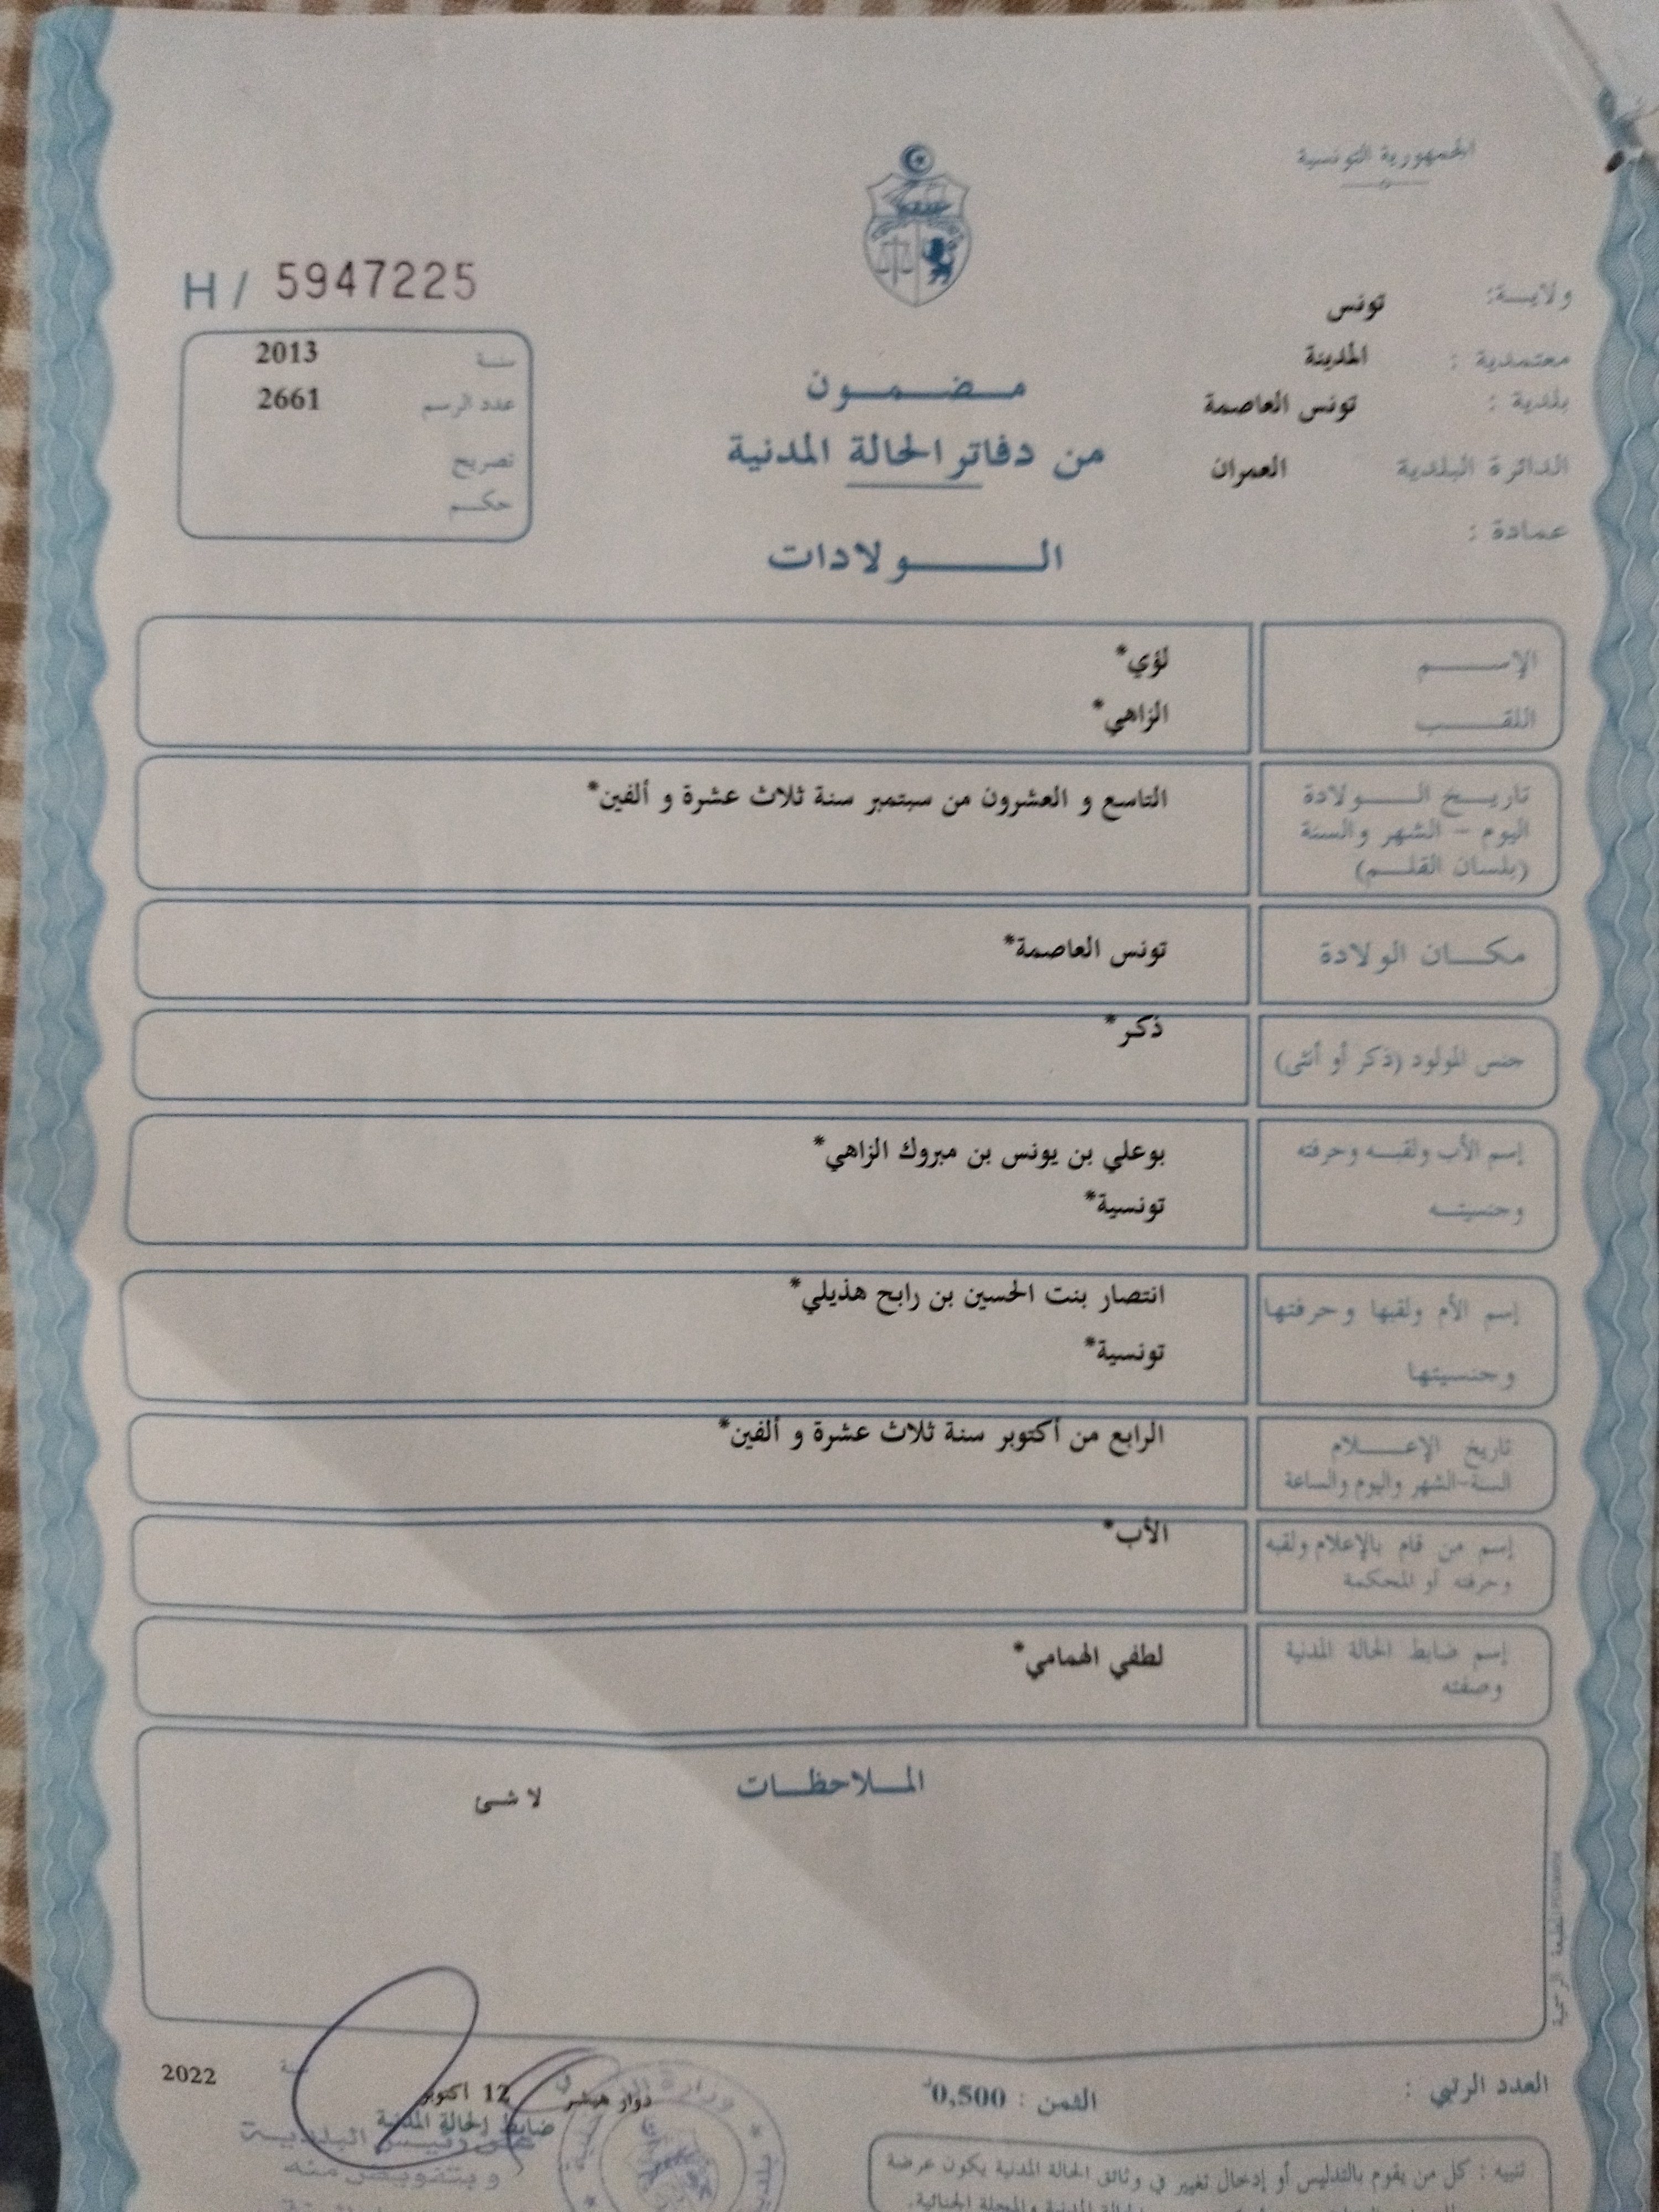 الجمهورية التونسية
H / 5947225
ولايـــة: تونس
معتمدية : المدينة
بلدية : تونس العاصمة
الدائرة البلدية العمران
عمادة :
سنة 2013
عدد الرسم 2661
تصريح
حكـــم
مـــضـــمـــون
من دفاتر الحالة المدنية
الـــــولادات
الإســـــم لؤي*
اللقـــــب الزاهي*
تاريـــخ الـــــولادة التاسع و العشرون من سبتمبر سنة ثلاث عشرة و ألفين*
اليوم - الشهر والسنة
(بلسان القلـــم)
مكـــان الولادة تونس العاصمة*
جنس المولود (ذكر أو أنثى) ذكر*
إسم الأب ولقبـــه وحرفته بوعلي بن يونس بن مبروك الزاهي*
وجنسيتـــه تونسية*
إسم الأم ولقبها وحرفتها انتصار بنت الحسين بن رابح هذيلي*
وجنسيتها تونسية*
تاريخ الإعـــلام الرابع من أكتوبر سنة ثلاث عشرة و ألفين*
السنة-الشهر واليوم والساعة
إسم من قام بالإعلام ولقبه الأب*
وحرفته أو المحكمة
إسم ضابط الحالة المدنية لطفي الهمامي*
وصفته
الملاحظـــات
لا شئ
العدد الرتبي :
الثمن : 0,500د
دوار هيشر في 12 أكتوبر سنة 2022
ضابط الحالة المدنية
عن رئيس البلديـــة
وبتفويض منه
تنبيه : كل من يقوم بالتدليس أو إدخال تغيير في وثائق الحالة المدنية يكون عرضة
الحالة المدنية والمجلة الجنائية.